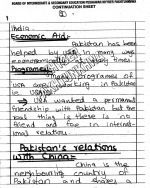 BOARD OF INTERMEDIATE & SECONDARY EDUCATION
CONTINUATION SHEET
India
Economic Aid:-
Pakistan has been
helped by in many
economically at many times.
Programmes
Many programes of
USA are working in Pakistan
USA wanted a permanent
friendship with Pakistan but the
real thing is there is no
friend and foe in internat-
ional relation.
Pakistan's relations
with China:-
China is the
neighbouring country of
Pakistan and shares a